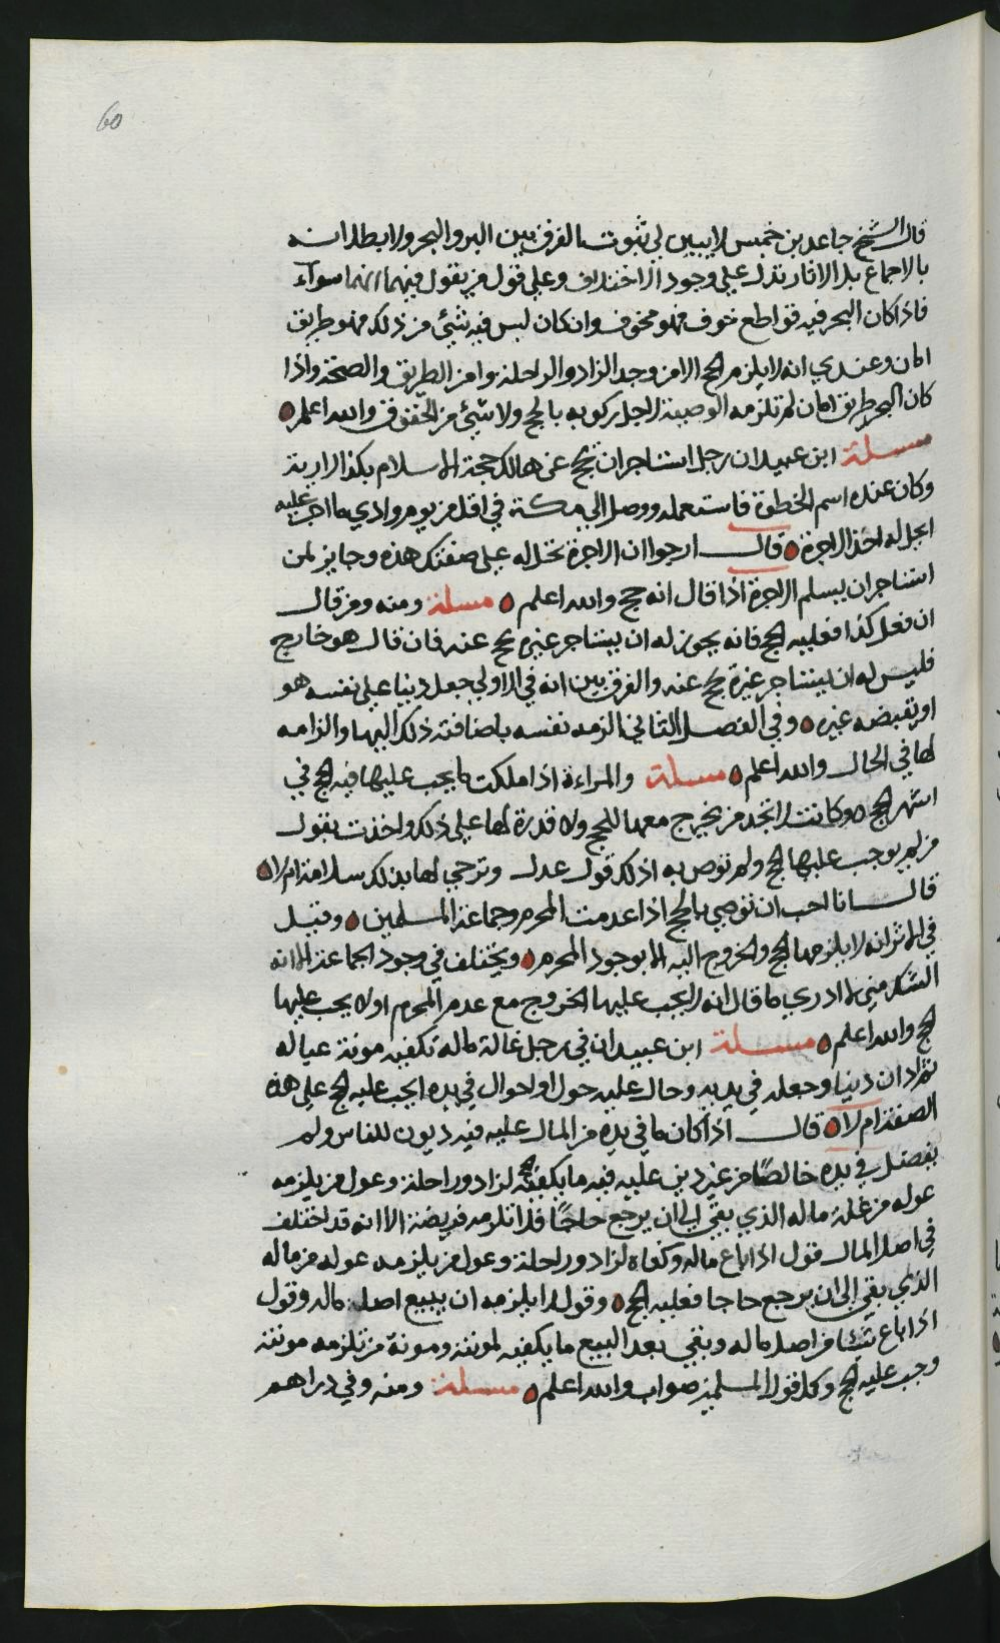 60
قال الشيخ جاعد بن خميس لا يبين لي ثبوت الفرق بين البر والبحر ولا بطلانه
بالاجماع بل الاثار تدل علي وجود الاختلاف وعلي قول من يقول فيهما انهما سوآء
فاذا كان البحر فيه قواطع خوف فهو مخوف وان كان ليس فيه شيئ من ذلك فهو طريق
امان وعندي انه لا يلزم الحج الا من وجد الزاد والراحلة وامن الطريق والصحة واذا
كان البحر طريق امان لم تلزمه الوصية لاجل ركوبه بالحج ولا شيئ من الحقوق والله اعلم
مسلة ابن عبيدان رجل استاجر ان يحج عن هالك حجة الاسلام بكذا لارية
وكان عنده اسم الخطوة فاستعمله ووصل الي مكة في اقل من يوم وادي ما اجر عليه
ايحل له اخذ الاجرة قال ارجوا ان الاجرة تحل له علي صفتك هذه وجايز لمن
استاجر ان يسلم الاجرة اذا قال انه حج والله اعلم مسلة ومنه ومن قال
ان فعل كذا فعليه الحج فانه يجوز له ان يستاجر غيره يحج عنه فان قال هو خارج
فليس له ان يستاجر غيره يحج عنه والفرق بين انه في الاولي جعل دينا علي نفسه هو
او يقبضه غيره وفي الفصل الثاني الزمه نفسه باضافته ذلك اليها والزامه
لها في الحال والله اعلم مسلة والمراءة اذا ملكت ما يجب عليها فيه الحج في
اشهر الحج وكانت لا تجد من يخرج معها للحج ولا قدرة لها علي ذلك واخذت بقول
من لم يوجب عليها الحج ولم توص به اذلك قول عدل وترجي لها بذلك سلامة ام لا
قال انا احب ان توصي بالحج اذا عدمت المحرم وجماعة المسلمين وقيل
في الاثر انه لا يلزمها الحج والخروج اليه الا بوجود المحرم ويختلف في وجود الجماعة الا انه
الشك مني لا ادري ما قال انه لا يجب عليها الخروج مع عدم المحرم او لا يجب عليها
الحج والله اعلم مسلة ابن عبيدان في رجل غالة ماله تكفيه مونة عياله
ثم ادان دينا وجعله في يديه وحال عليه حول او احوال في يده ايجب عليه الحج علي هذه
الصفة ام لا قال اذا كان ما في يده من المال عليه فيه ديون للناس ولم
يفضل في يده خالصًا من غير دين عليه فيه ما يكفيه لزاد وراحلة وعول من يلزمه
عوله من غلة ماله الذي بقي الي ان يرجع حاجًا فلا تلزمه فريضة الا انه قد اختلف
في اصل المال فقول اذا باع ماله وكفاه لزاد وراحلة وعول من يلزمه عوله من ماله
الذي بقي الي ان يرجع حاجا فعليه الحج وقول لا يلزمه ان يبيع اصل ماله وقول
اذا باع شيئا من اصل ماله وبقي بعد البيع ما يكفيه لمونته ومونة من تلزمه مونته
وجب عليه الحج وكل قول المسلمين صواب والله اعلم مسلة ومنه وفي دراهم